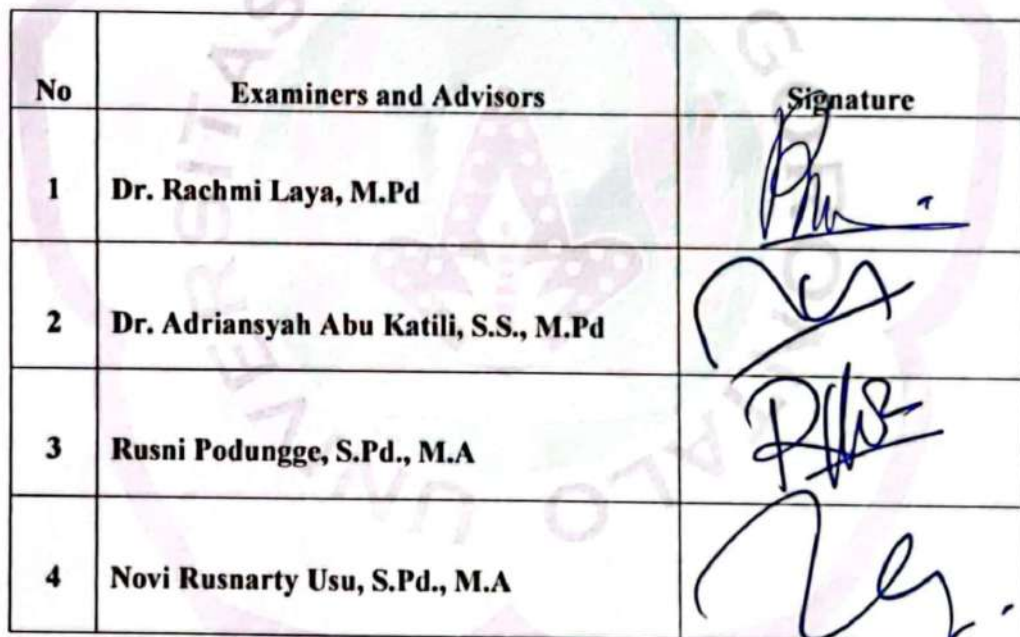 No Examiners and Advisors Signature
1 Dr. Rachmi Laya, M.Pd
2 Dr. Adriansyah Abu Katili, S.S., M.Pd
3 Rusni Podungge, S.Pd., M.A
4 Novi Rusnarty Usu, S.Pd., M.A
UNIVERSITAS
GORONTALO